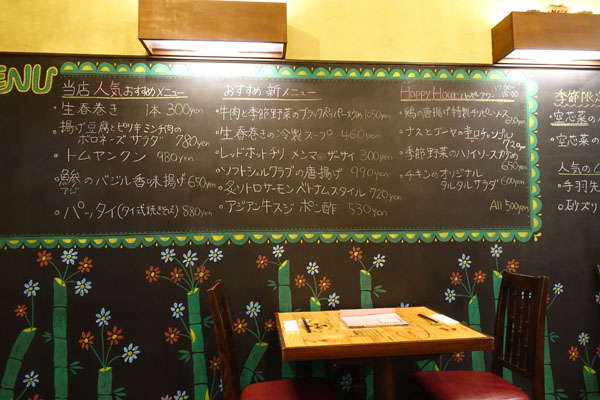 ENU
当店 人気おすすめメニュー
・生春巻き 1本 300yen
・揚げ豆腐とピリ辛ミンチ肉の
ボロネーズサラダ 780yen
・トムヤンクン 980yen
・鯵のバジル香味揚げ 650yen
アジ
・パッタイ(タイ式焼きそば) 880yen
おすすめ 新メニュー
・牛肉と季節野菜のブラックペッパー炒め 1050yen
・生春巻きの冷製スープ 460yen
・レッドホットチリ メンマ ザーサイ 300yen
・ソフトシェルクラブの唐揚げ 990yen
・炙りトロサーモンベトナムスタイル 720yen
・アジアン牛スジ ポン酢 530yen
Happy Hour ハッピーアワー 17:00~
18:00
・鶏の唐揚げ特製チリソースア
650yen
・ナスとゴーヤの辛口チャンプル
720yen
・季節野菜のハイソース
650yen
・チキンのオリジナル
タルタルサラダ 600yen
All 500yen
季節限定
・空芯菜の
・空芯菜の
人気の
・手羽先
・砂ズリ